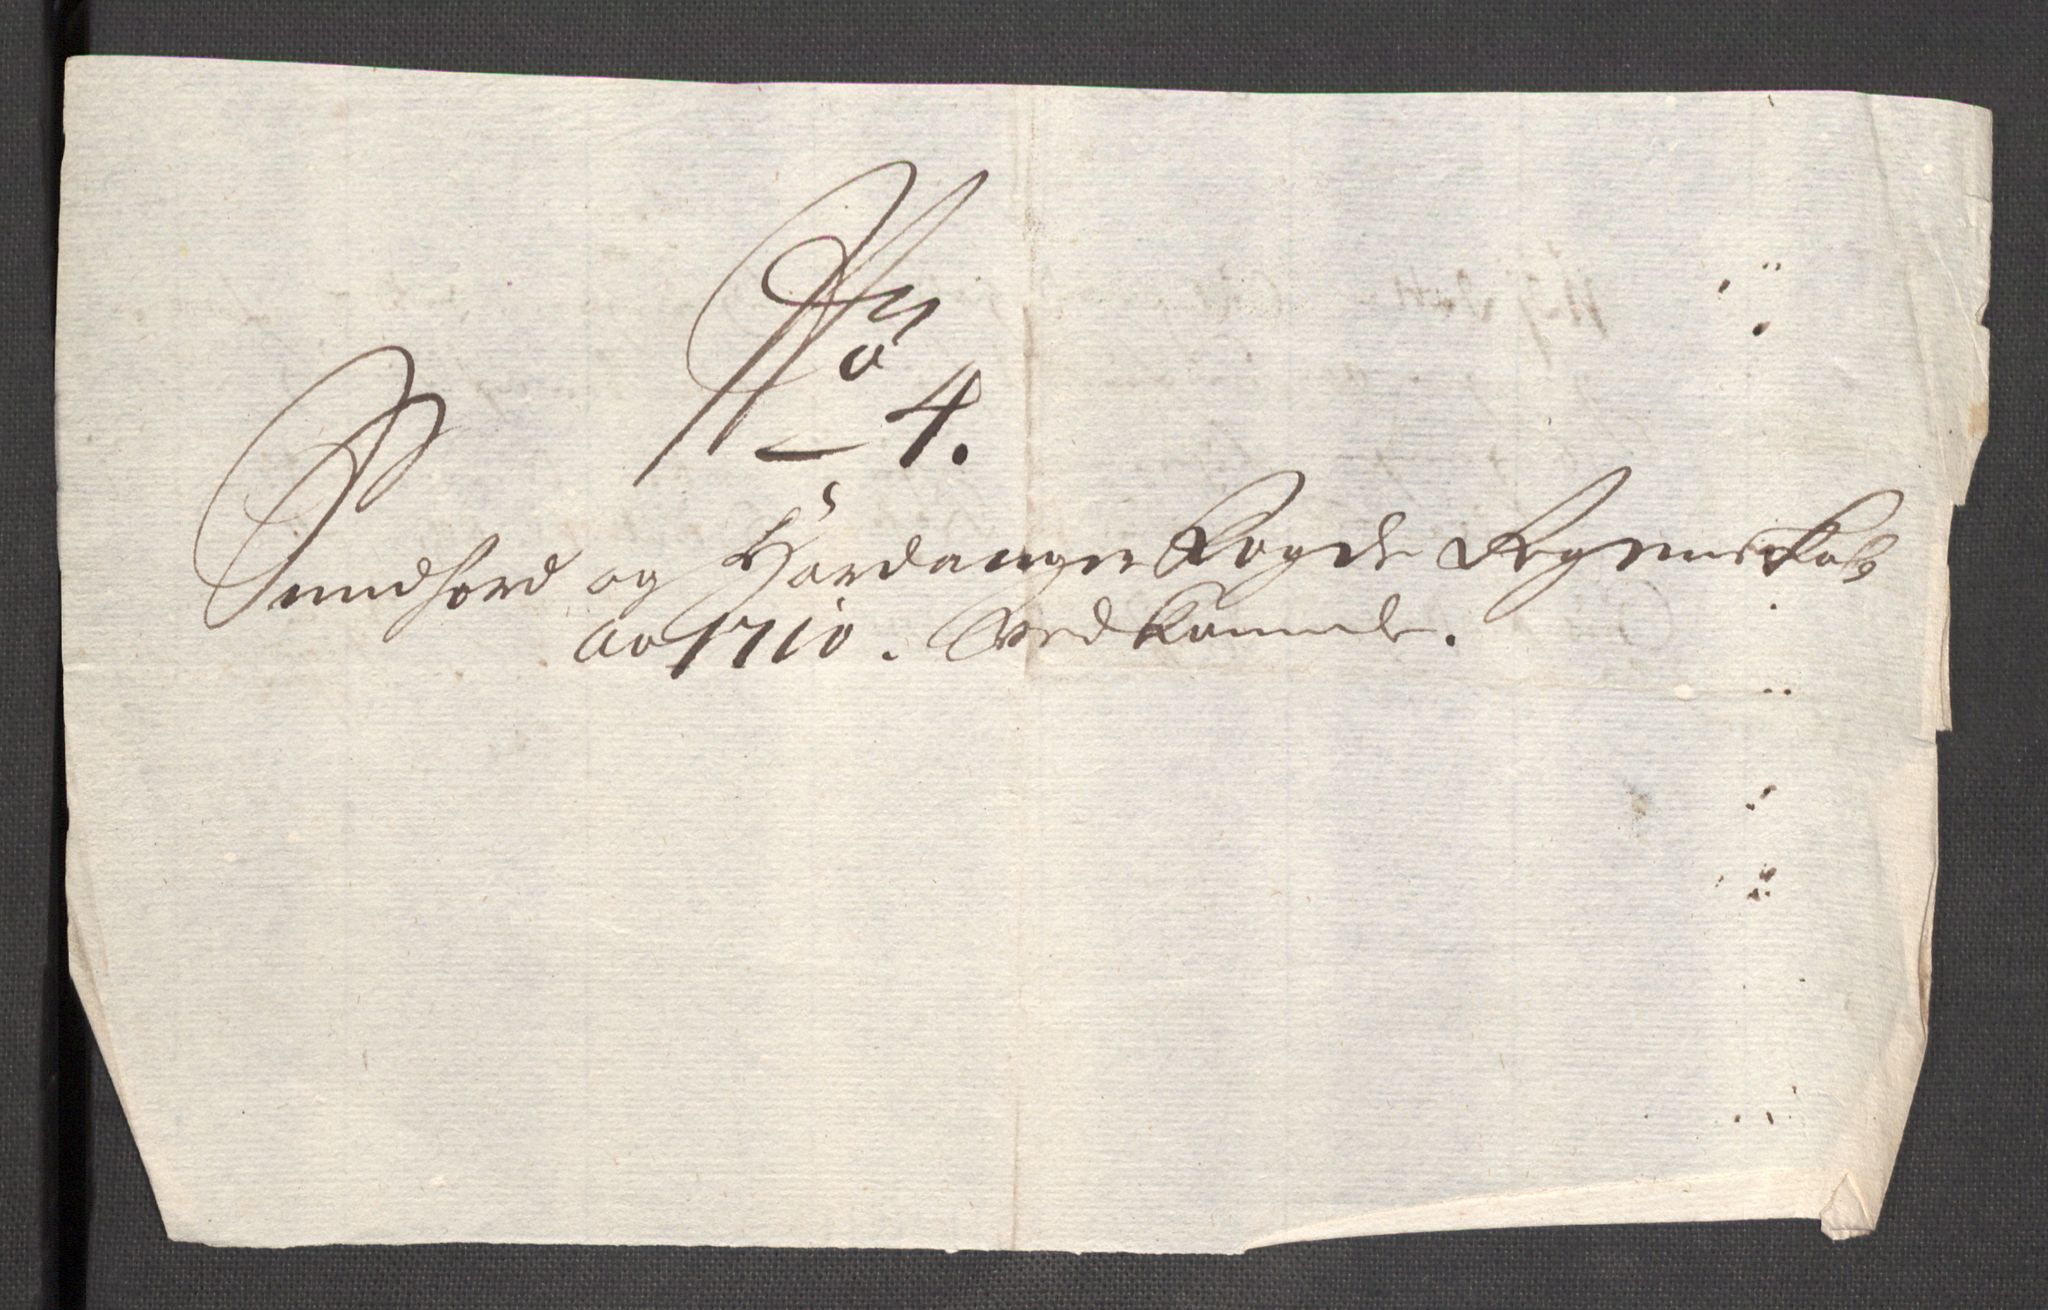 No 4.
Sundhord og Hardanger Fogde Regenskab
ao 1710. Vedkommede.